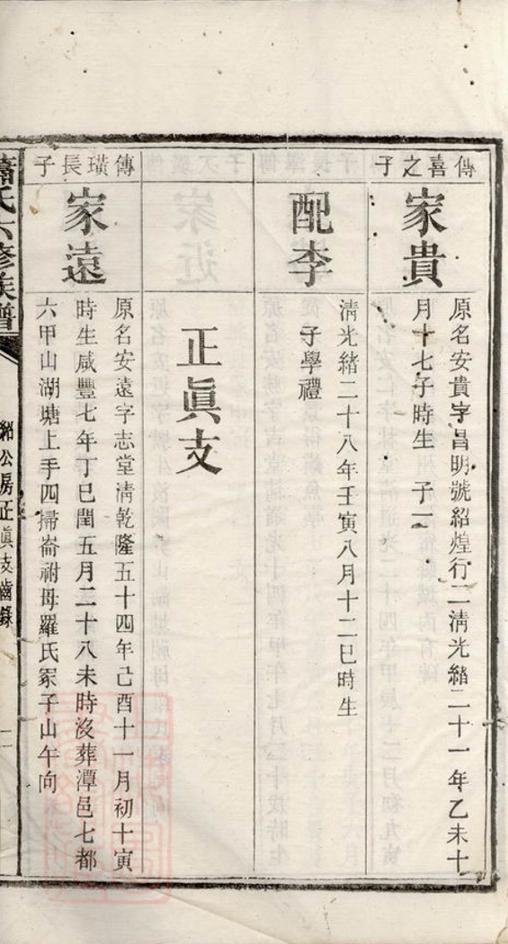 傳喜之子
家貴
原名安貴字昌明號紹煌行二清光緒二十一年乙未十
月十七子時生　子一
配李
清光緒二十八年壬寅八月十二巳時生
子學禮
正眞支
傳璜長子
家遠
原名安遠字志堂清乾隆五十四年己酉十一月初十寅
時生咸豐七年丁巳閏五月二十八未時沒葬潭邑七都
六甲山湖塘上手四掃崙祔母羅氏冢子山午向
蕭氏六修族譜
公房正眞支齒錄